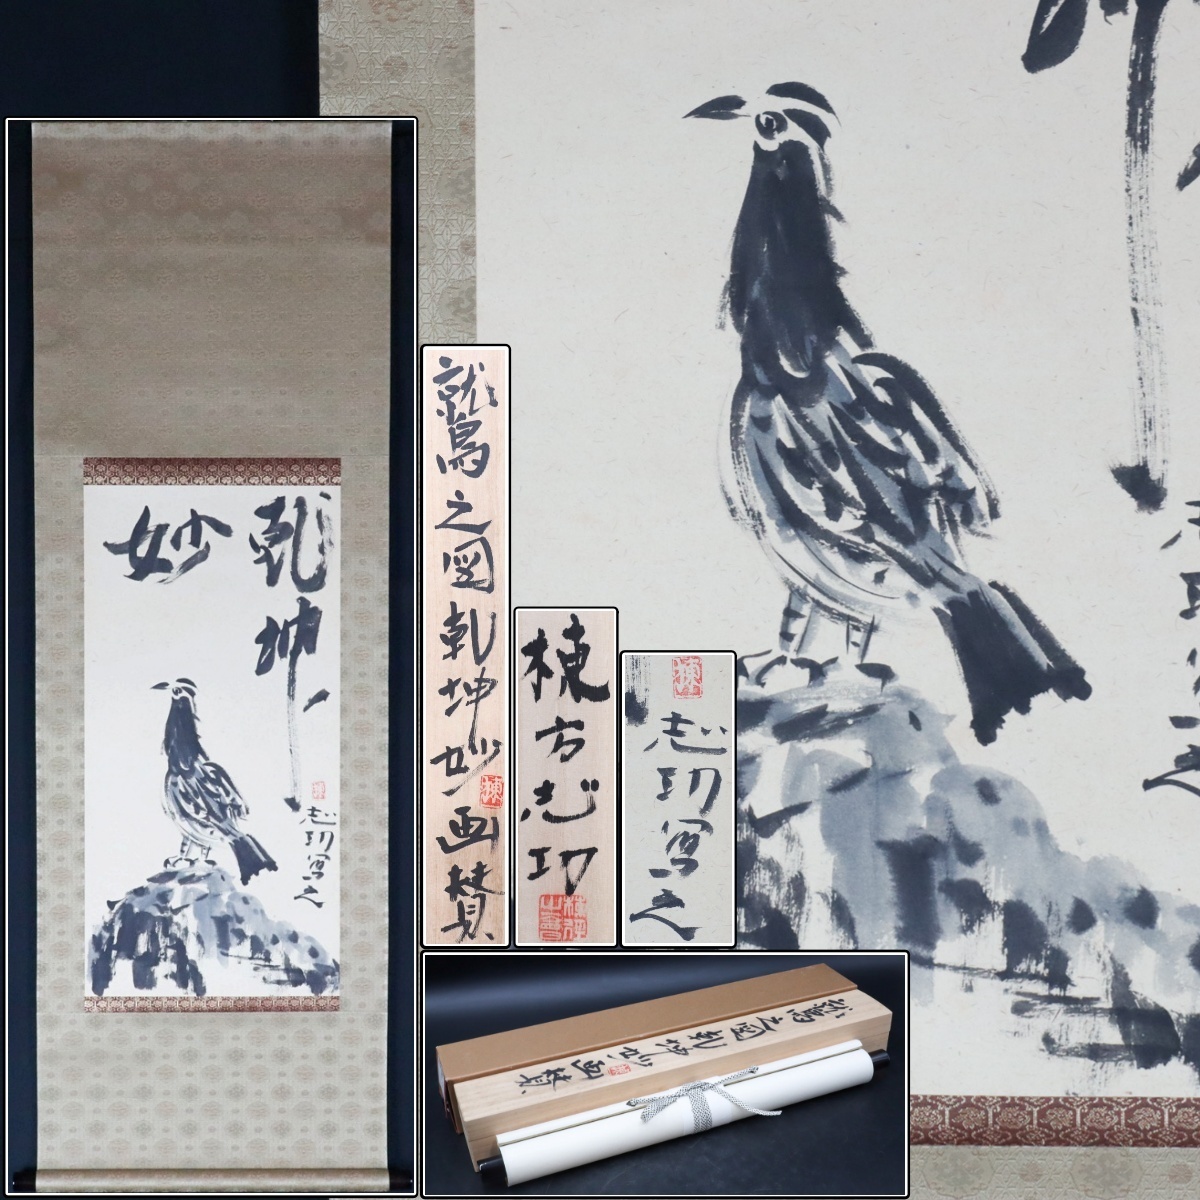 乾坤
妙
志功写之
鷲鳥之図乾坤妙画賛
棟
棟方志功
棟
志功写之
鷲鳥之図乾坤妙画賛